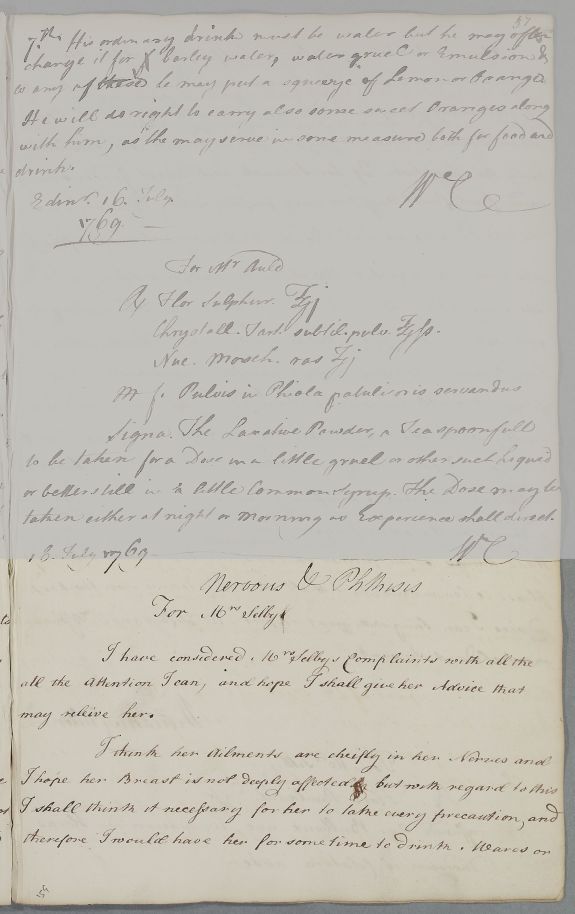 57
7th. His ordinary drink must be water but he may often
change it for barley water, water gruel or Emulsion &
to any of these he may put a squeeze of Lemon or Orange
He will do right to carry also some sweet Oranges along
with him, as the may serve in some measure both for food and
drink.
Edinr. 16. July
1769
WC
For Mr Auld
℞ Flor Sulphur. ℥j
Chrystall. Tart. subtil. pulv. ℥ſs.
Nuc. Mosch. ras ʒj
M f. Pulvis in Phiola patuli oris servandus
Signa. The Laxative Powder, a Teaspoonfull
to be taken for a Dose in a little gruel or other such Liquid
or better still in a little Common Syrup. The Dose may be
taken either at night or morning as Experience shall direct.
16. July 1769
WC
Nervous & Phthisis
For Mrs Selby
I have considered. Mrs Selbys Complaints with all the
all the Attention I can, and hope I shall give her Advice that
may releive her.
I think her Ailments are cheifly in her Nerves and
I hope her Breast is not deeply affected, but with regard to this
I shall think it necessary for her to take every precaution, and
therefore I would have her for some time to drink. Wares or